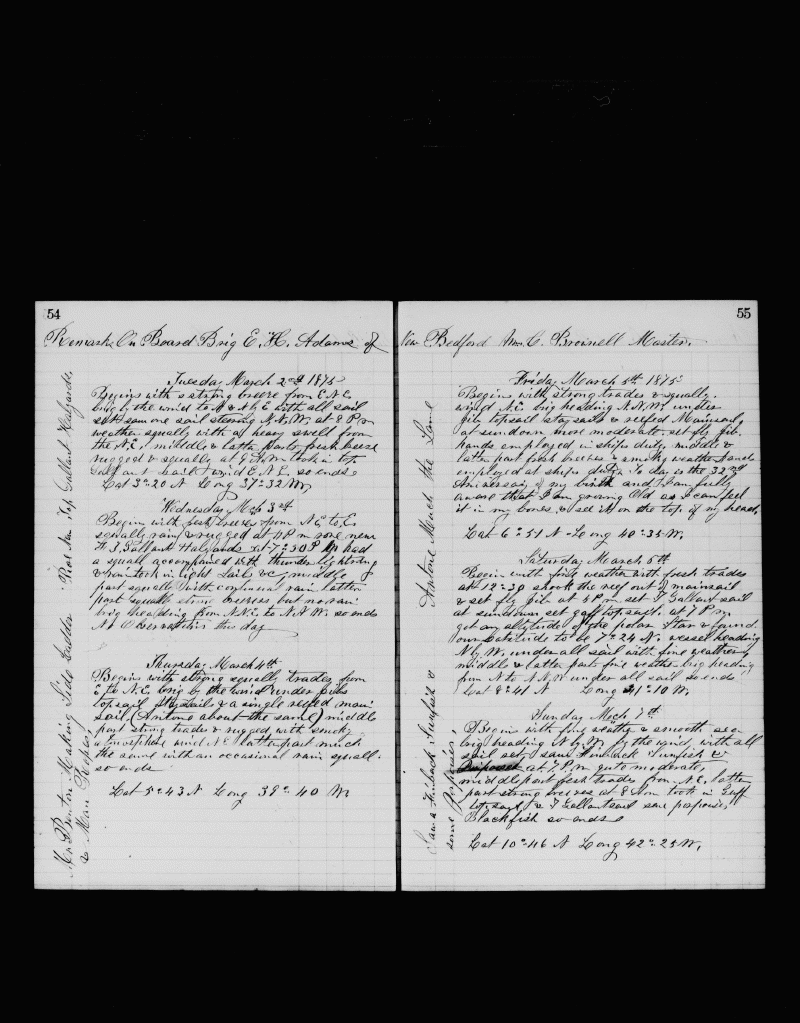 54
Remarks On Board Brig E. H. Adams of
Tuesday March 2nd 1875
Begins with a strong breeze from E N E
brig by the wind to N & N by E with all sail
set same one sail steering N.N.W. at 8 P m
weather squally with a heavy swell from
the N.E. middle & latter parts fresh breeze
rugged & squally at 9 A m took in top
Gallant Sail wind E N E. so ends
Lat 3°-20 N Long 37°-32 W,
Wednesday Mch 3rd
Begin with fresh breezes from N.E. to E.
squally rain & rugged at 4 P m rove new
F. T. Gallant Halyards at 7°-30 P m had
a squall accompanied with thunder lightning
& rain took in light Sails &c, middle
part squally with continual rain latter
part squally strong breezes but no rain
brig heading from N.N.E. to N.N.W. so ends
No Observations this day
Thursday March 4th
Begins with strong squally trades from
E to N.E. brig by the wind under
topsail Staysails & a single reefed main
sail. (Antone about the same) middle
part strong trades & rugged with smoky
atmosphere wind N.E. latter part much
the same with an occasional rain squall.
so ends
Lat 5°-43 N Long 39°-40 W.
Mr. Benton Making Side Ladder Rove New Top Gallant Halyards,
& Man Ropes,
55
New Bedford Wm. C. Brownell Master.
Friday March 5th 1875
Begins with strong trades & squally.
wind N.E. brig heading N.N.W. under
topsail staysails & reefed Mainsail,
at sundown more moderate set fly jib.
hands employed in ships duty. middle &
latter part fresh breezes & smoky weather hands
employed at ships duty. To day is the 32nd
Aniversary of my birth and I am fully
aware that I am growing Old as I can feel
it in my bones & see it on the top of my head,
Lat 6°-51 N Long 40°-35 W.
Saturday March 6th
Begins with fine weather with fresh trades
at 12°-30 shook the reef out of mainsail
& set fly jib. at 4 P m set T Gallant sail
at sundown set gaff topsail. at 7 P m
got an altitude of the polar Star & found
our Latitude to be 7°-24 N. vessel heading
N by W. under all sail with fine weather
middle & latter part fine weather brig heading
from N to N.N.W under all sail so ends
Lat 8°-41 N Long 41°-10 W.
Sunday Mch 7th
Begins with fine weather & smooth sea
brig heading N by W. by the wind with all
sail set saw Finback Sunfish &
at 7 P m quite moderate,
middle part fresh trades from N.E. latter
part strong breezes at 8 A m took in Gaff
topsail & T Gallantsail saw porpoises,
Blackfish so ends
Lat 10°-46 N Long 42°-25 W,
Antone Much the Same
Saw a Finback Sunfish &
some Porpoises,